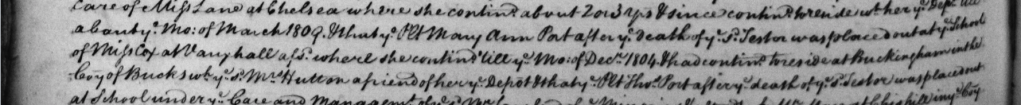 Care of Miss Lane at Chelsea where she contind. about 2 or 3 yrs & since contind. to reside wth. her ye. Dept. till
about ye. Mo: of March 1809 & that ye. Plt Mary Ann Port after ye. death of ye. sd. Testor was placed out at ye. School
of Miss Cox at Vauxhall afsd. where she contind. till ye. Mo: of Decr. 1804 & had contind. to reside at Buckingham in the
Coy of Bucks wth. ye. sd. Mrs. Hutton a friend of her ye. Depot & that ye. Plt Thos. Port after ye. death of ye. sd. Testor was placed out
at School under ye. Care and Managemt. of